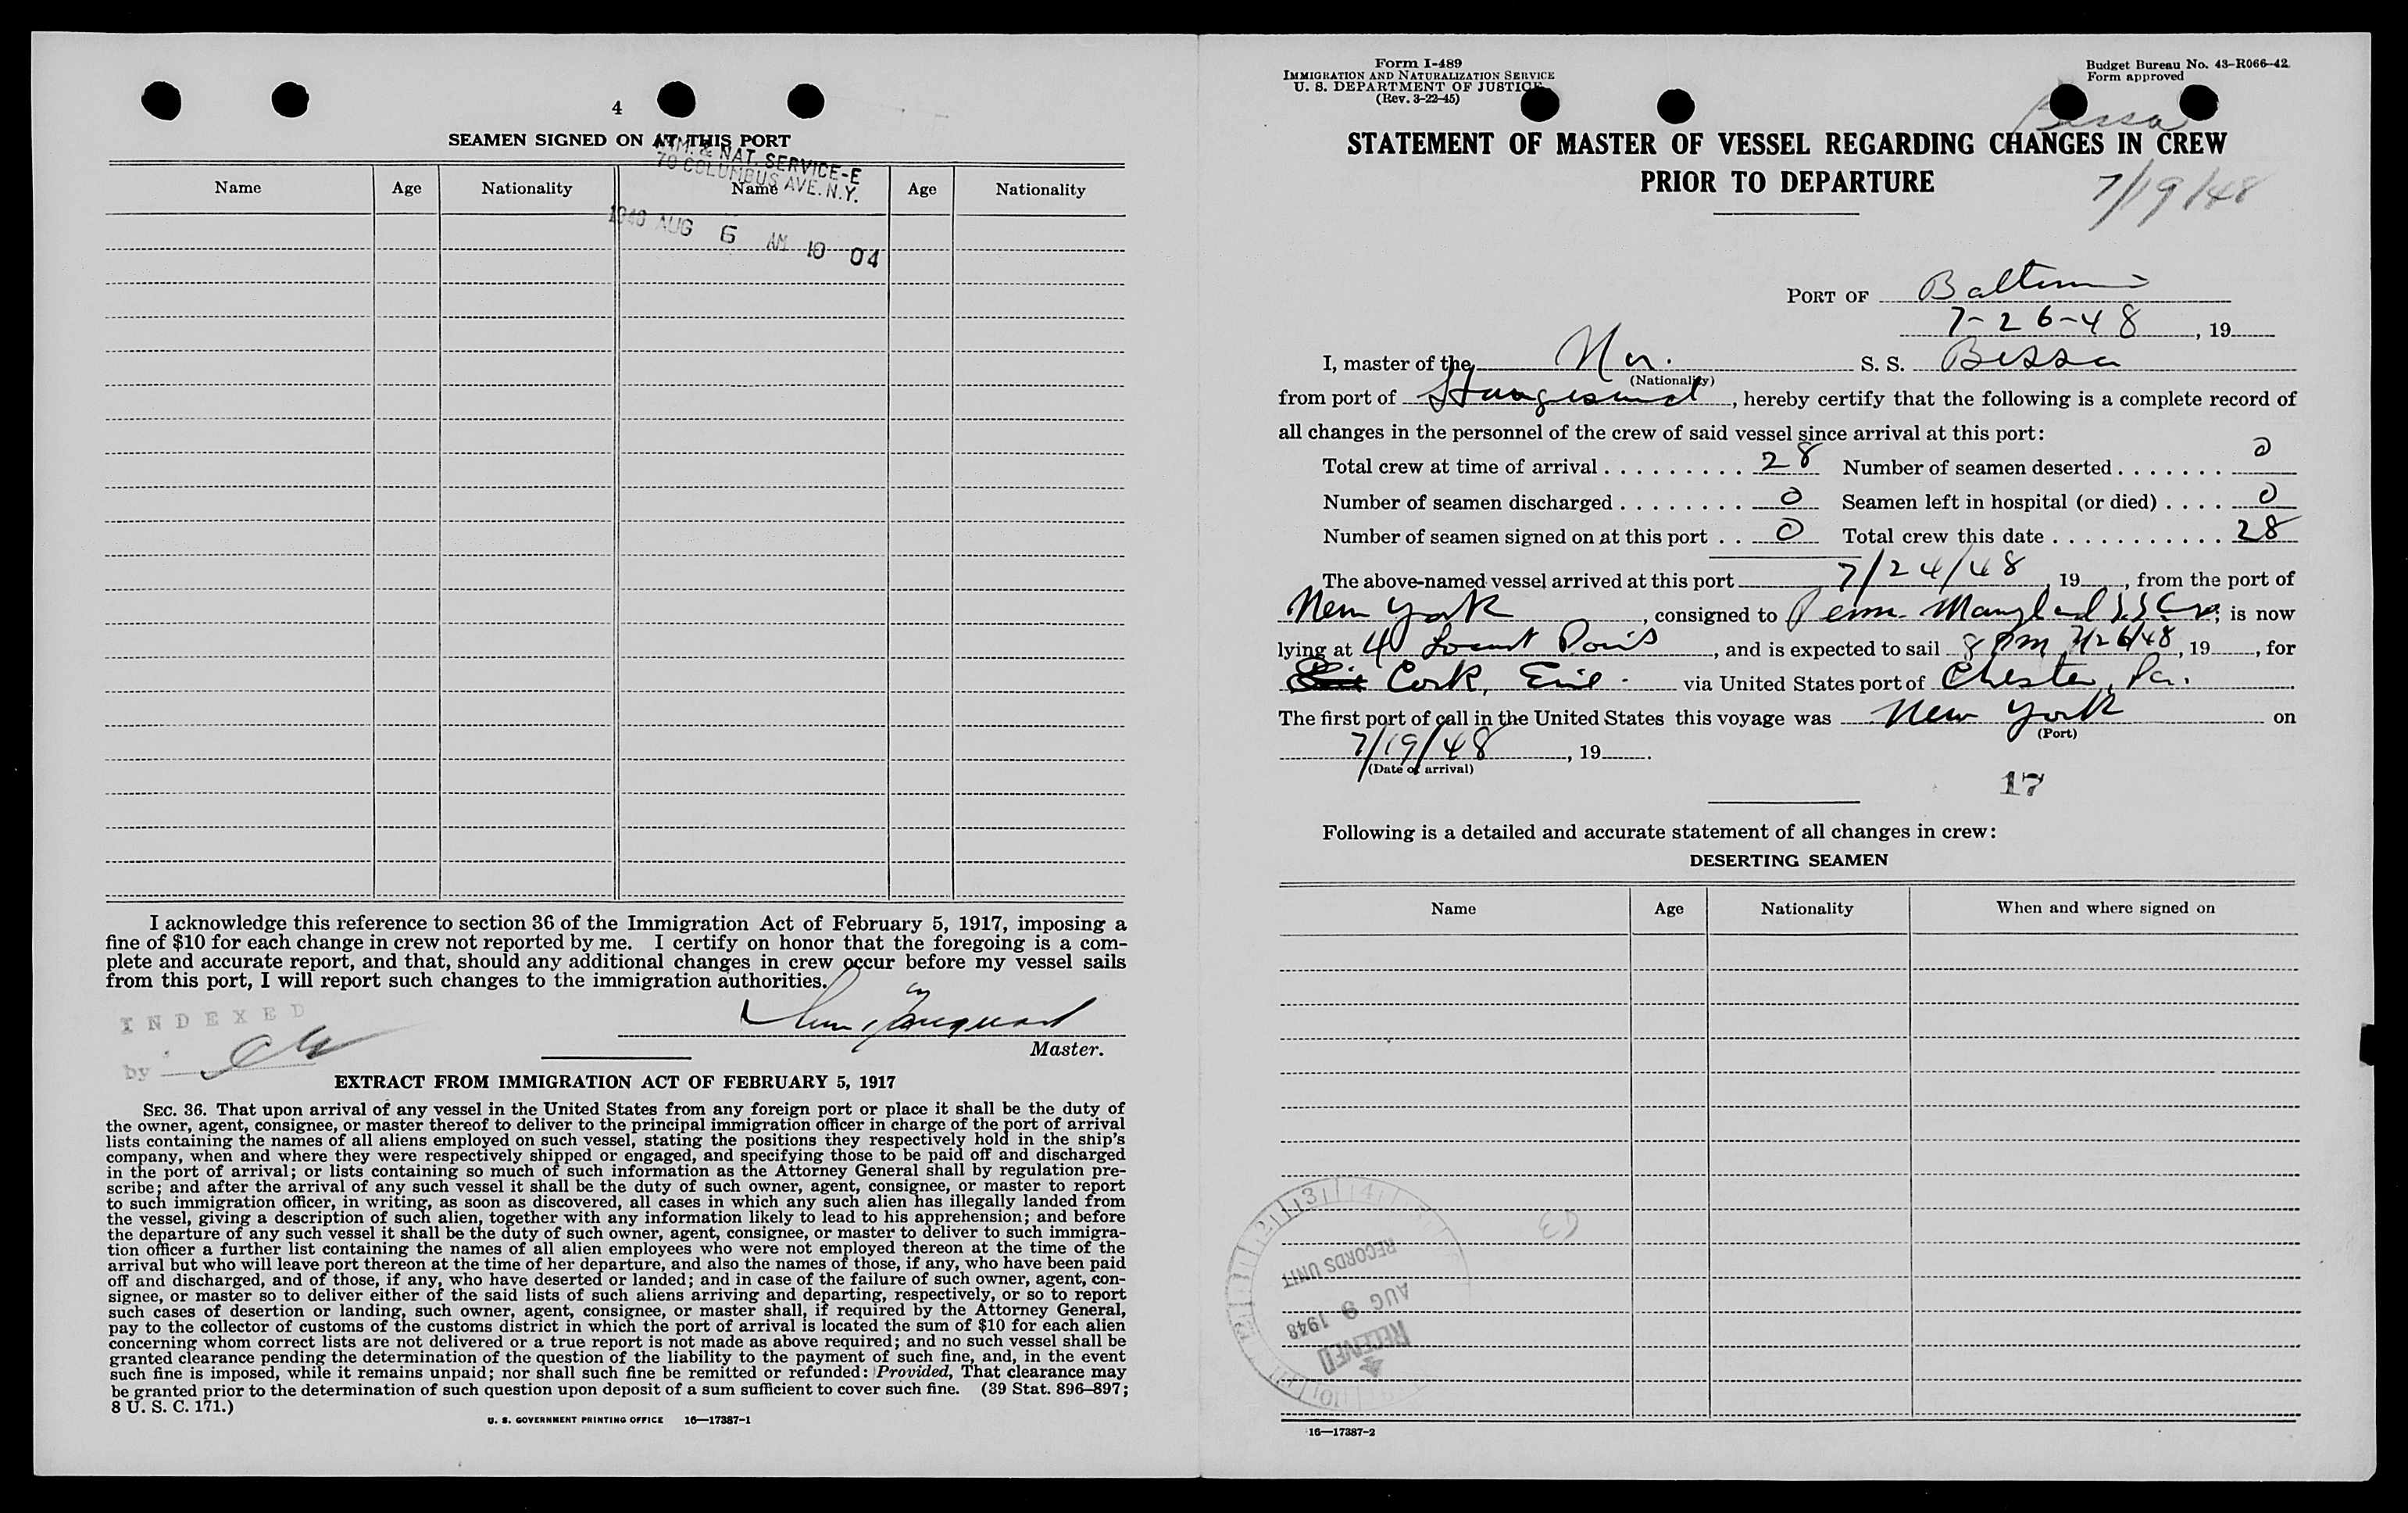 4
SEAMEN SIGNED ON AT THIS PORT
IMM. & NAT. SERVICE-E
70 COLUMBUS AVE. N.Y.
Name Age Nationality Name Age Nationality
AUG 6 AM 10 04
I acknowledge this reference to section 36 of the Immigration Act of February 5, 1917, imposing a
fine of $10 for each change in crew not reported by me. I certify on honor that the foregoing is a com-
plete and accurate report, and that, should any additional changes in crew occur before my vessel sails
from this port, I will report such changes to the immigration authorities.
INDEXED
by
Master.
EXTRACT FROM IMMIGRATION ACT OF FEBRUARY 5, 1917
SEC. 36. That upon arrival of any vessel in the United States from any foreign port or place it shall be the duty of
the owner, agent, consignee, or master thereof to deliver to the principal immigration officer in charge of the port of arrival
lists containing the names of all aliens employed on such vessel, stating the positions they respectively hold in the ship's
company, when and where they were respectively shipped or engaged, and specifying those to be paid off and discharged
in the port of arrival; or lists containing so much of such information as the Attorney General shall by regulation pre-
scribe; and after the arrival of any such vessel it shall be the duty of such owner, agent, consignee, or master to report
to such immigration officer, in writing, as soon as discovered, all cases in which any such alien has illegally landed from
the vessel, giving a description of such alien, together with any information likely to lead to his apprehension; and before
the departure of any such vessel it shall be the duty of such owner, agent, consignee, or master to deliver to such immigra-
tion officer a further list containing the names of all alien employees who were not employed thereon at the time of the
arrival but who will leave port thereon at the time of her departure, and also the names of those, if any, who have been paid
off and discharged, and of those, if any, who have deserted or landed; and in case of the failure of such owner, agent, con-
signee, or master so to deliver either of the said lists of such aliens arriving and departing, respectively, or so to report
such cases of desertion or landing, such owner, agent, consignee, or master shall, if required by the Attorney General,
pay to the collector of customs of the customs district in which the port of arrival is located the sum of $10 for each alien
concerning whom correct lists are not delivered or a true report is not made as above required; and no such vessel shall be
granted clearance pending the determination of the question of the liability to the payment of such fine, and, in the event
such fine is imposed, while it remains unpaid; nor shall such fine be remitted or refunded: Provided, That clearance may
be granted prior to the determination of such question upon deposit of a sum sufficient to cover such fine. (39 Stat. 896–897;
8 U. S. C. 171.)
U. S. GOVERNMENT PRINTING OFFICE 16—17387-1
Form I-489
IMMIGRATION AND NATURALIZATION SERVICE
U. S. DEPARTMENT OF JUSTICE
(Rev. 3-22-45)
Budget Bureau No. 43-R066-42
Form approved
Bessa
STATEMENT OF MASTER OF VESSEL REGARDING CHANGES IN CREW
PRIOR TO DEPARTURE
7/19/48
PORT OF Baltimore
7-26-48, 19
I, master of the Nor. S. S. Bessa
(Nationality)
from port of Haugesund, hereby certify that the following is a complete record of
all changes in the personnel of the crew of said vessel since arrival at this port:
Total crew at time of arrival 28 Number of seamen deserted 0
Number of seamen discharged 0 Seamen left in hospital (or died) 0
Number of seamen signed on at this port 0 Total crew this date 28
The above-named vessel arrived at this port 7/24/48, 19, from the port of
New York, consigned to Penn. Maryland S.S. Corp; is now
lying at 4 Locust Point, and is expected to sail 8 PM 7/26/48, 19, for
Cork, Eire. via United States port of Chester, Pa.
The first port of call in the United States this voyage was New York on
(Port)
7/19/48, 19.
(Date of arrival)
17
Following is a detailed and accurate statement of all changes in crew:
DESERTING SEAMEN
Name Age Nationality When and where signed on
RECEIVED
AUG 9 1948
RECORDS UNIT
16—17387-2